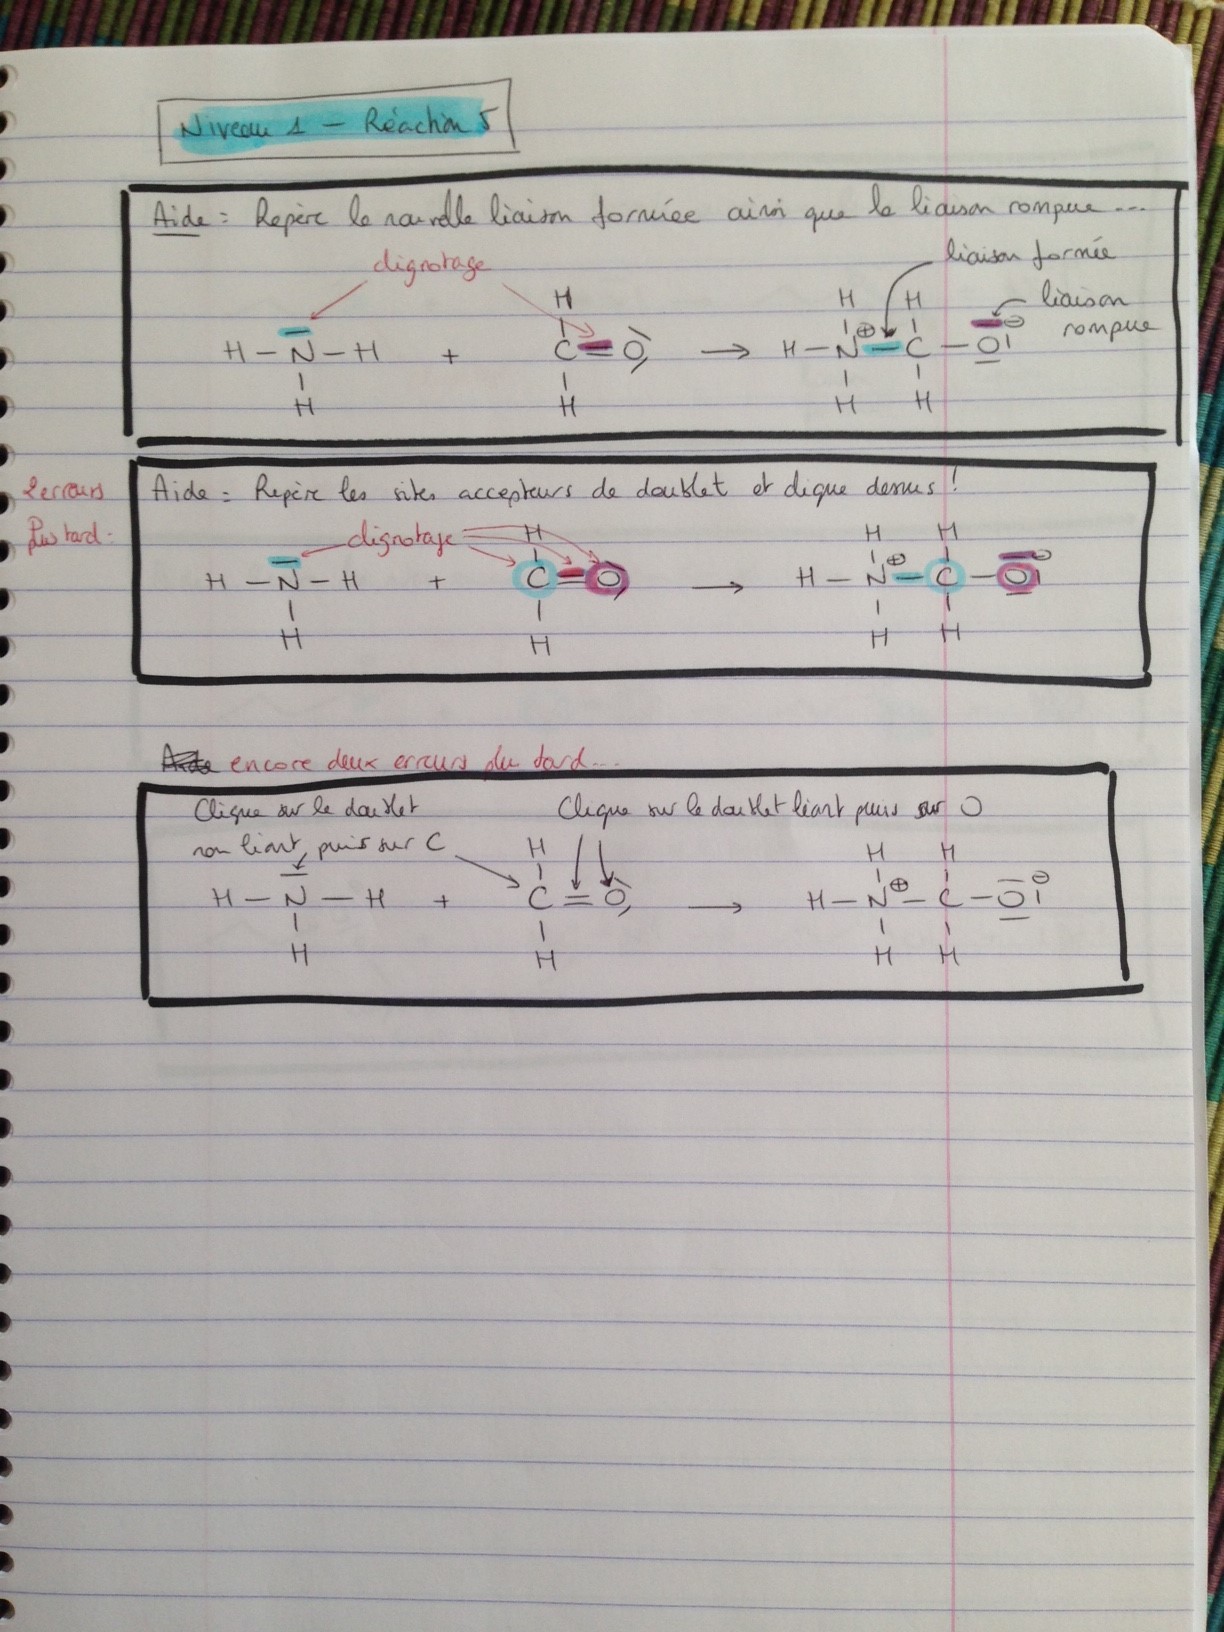 Niveau 1 - Réaction 5
Aide : Repère la nouvelle liaison formée ainsi que la liaison rompue ...
clignotage
liaison formée
liaison
rompue
H H H
H - N - H + C = O → H - N ⊕ - C - O ⊖
H H H H
2 erreurs
Plus tard :
Aide : Repère les sites accepteurs de doublet et clique dessus !
clignotage
H H H
H - N - H + C = O → H - N ⊕ - C - O ⊖
H H H H
encore deux erreurs plus tard ...
Clique sur le doublet
non liant, puis sur C
Clique sur le doublet liant puis sur O
H H H
H - N - H + C = O → H - N ⊕ - C - O ⊖
H H H H